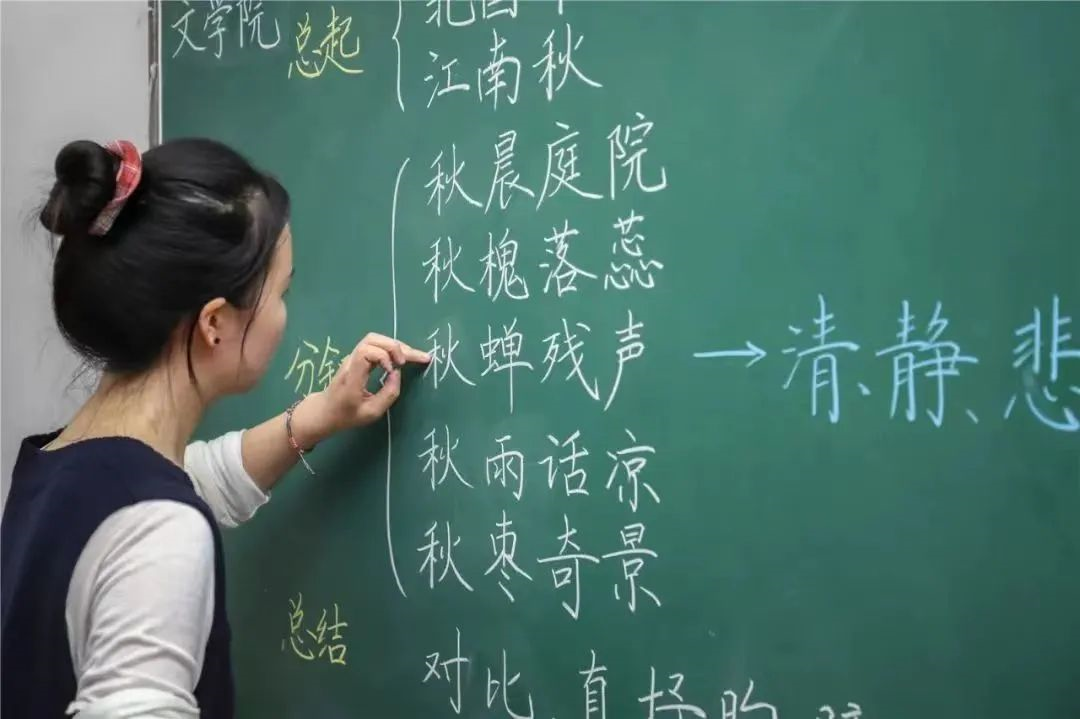 文学院
总起
江南秋
秋晨庭院
秋槐落蕊
秋蝉残声 → 清、静、悲
分
秋雨话凉
秋枣奇景
总结
对比